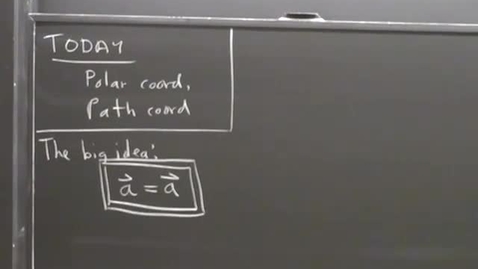 TODAY
Polar coord,
Path coord
The big idea:
a⃗ = a⃗